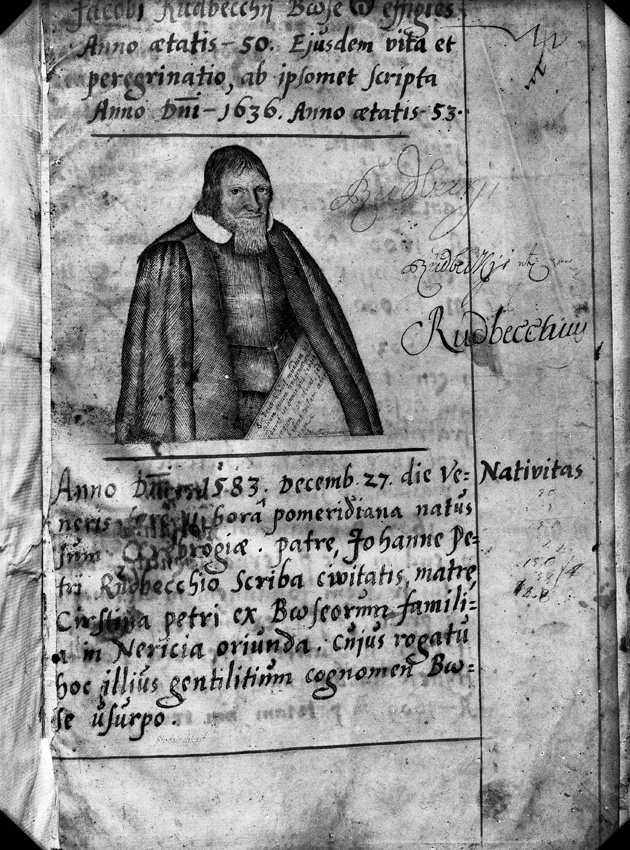 Jacobi Rudbecchij Bwse effigies.
Anno ætatis-50. Ejusdem vita et
peregrinatio, ab ipsomet scripta
Anno Dñi-1636. Anno ætatis-53.
Rudbecchius
Anno Dñi 1583. Decemb. 27. die Ve=
Nativitas
neris horâ pomeridiana natus
sum Orebrogiæ. patre, Johanne Pe=
tri Rudbecchio Scriba civitatis, matre,
Cirstina petri ex Bwseorum famili=
a in Nericia oriunda. Cujus rogatu
hoc illius gentilitium cognomen Bw=
se usurpo.